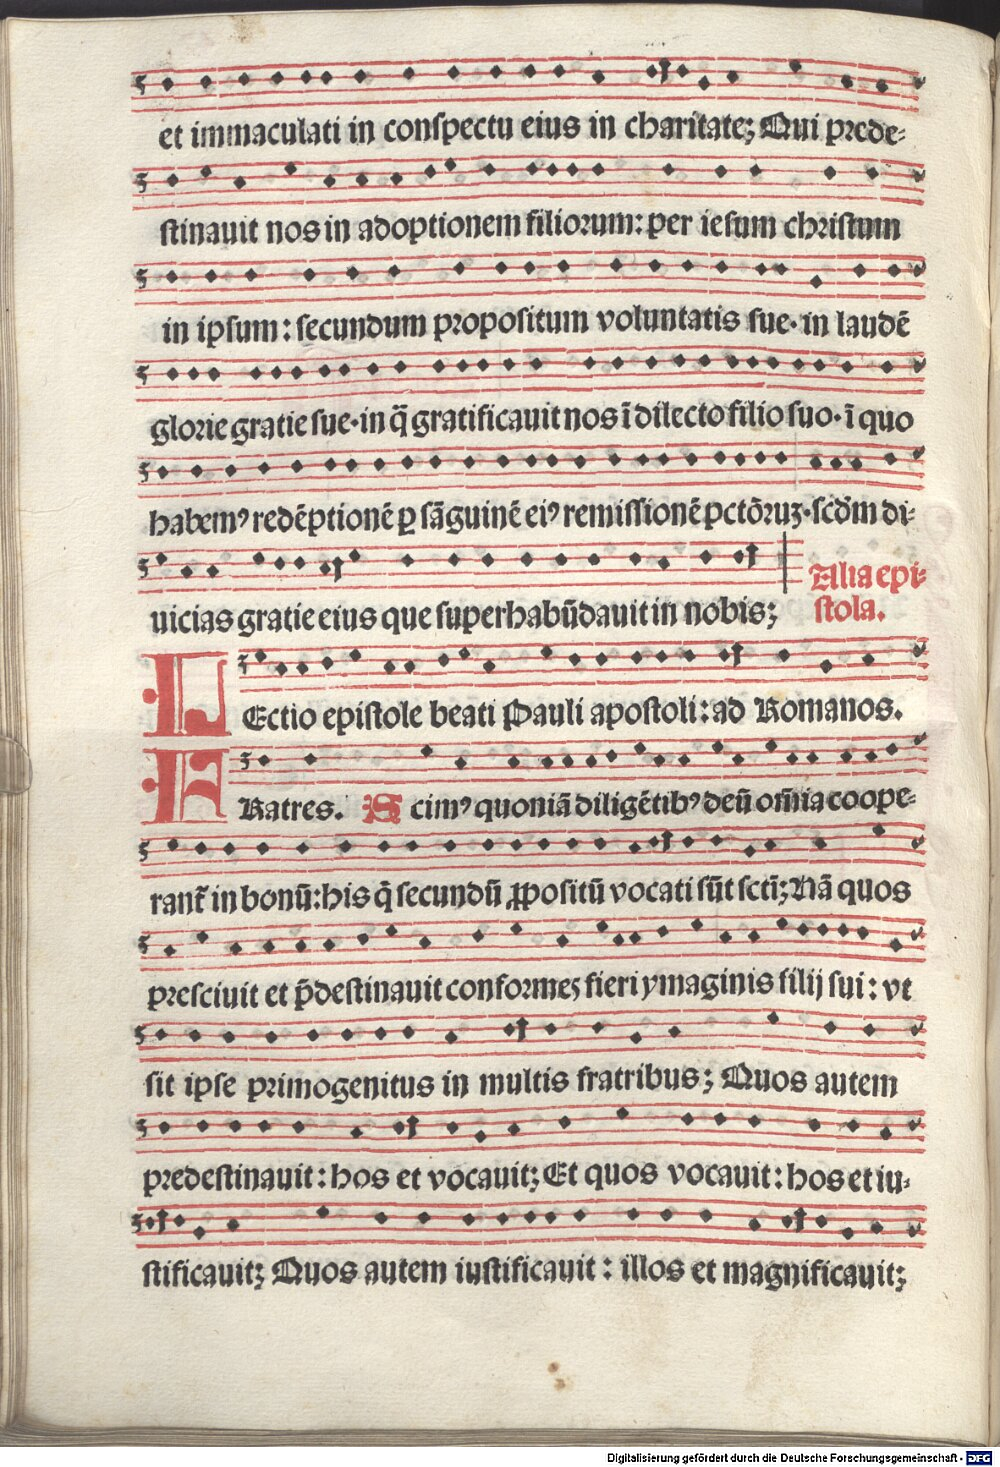 et immaculati in conſpectu eius in charitate; Qui prede⸗
ſtinauit nos in adoptionem filiorum: per ieſum chriſtum
in ipſum: ſecundum propoſitum voluntatis ſue. in laudē
glorie gratie ſue. in q̄ gratificauit nos ī dilecto filio ſuo. ī quo
habemꝰ redēptionē ꝑ ſāguinē eiꝰ remiſſionē pctōruꝫ. ſcd̄m di⸗
uicias gratie eius que ſuperhabūdauit in nobis;
Alia epi⸗
ſtola.
LEctio epiſtole beati Pauli apoſtoli: ad Romanos.
FRatres. Scimꝰ quoniā diligētibꝰ deū om̄ia coope⸗
rant᷑ in bonū: his q̄ ſecundū ꝓpoſitū vocati ſūt ſctī; Nā quos
preſciuit et p̄deſtinauit conformeꝫ fieri ymaginis filij ſui: vt
ſit ipſe primogenitus in multis fratribus; Quos autem
predeſtinauit: hos et vocauit; Et quos vocauit: hos et iu⸗
ſtificauit; Quos autem iuſtificauit: illos et magnificauit;
Digitalisierung gefördert durch die Deutsche Forschungsgemeinschaft - DFG